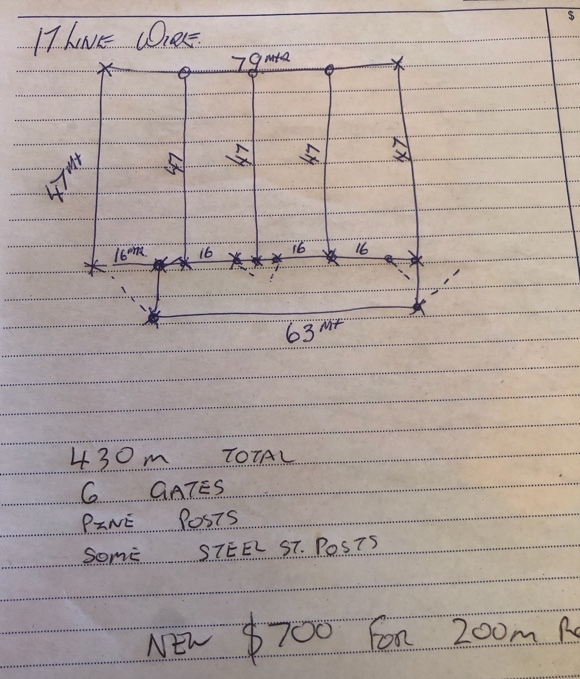 $
17 LINE WIRE.
79 MTR
47 MT
47
47
47
47
16 MTR
16
16
16
63 MT
430m TOTAL
6 GATES
PINE POSTS
SOME STEEL ST. POSTS
NEW $700 FOR 200m